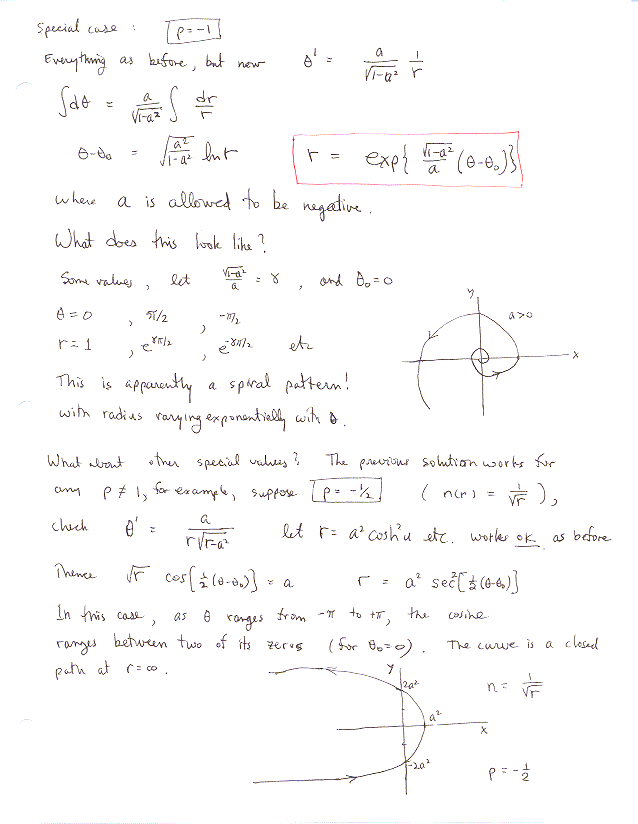 Special case : p = -1
Everything as before, but now θ' = a/√(1-a²) 1/r
∫dθ = a/√(1-a²) ∫ dr/r
θ-θ₀ = √(a²/(1-a²)) ln r    r = exp{ √(1-a²)/a (θ-θ₀)}
where a is allowed to be negative.
What does this look like?
Some values, let √(1-a²)/a = γ , and θ₀=0
θ = 0 , π/2 , -π/2
r = 1 , e^{γπ/2} , e^{-γπ/2} etc
y
a>0
x
This is apparently a spiral pattern!
with radius varying exponentially with θ.
What about other special values? The previous solution works for
any p ≠ 1, for example, suppose p = -1/2 ( n(r) = 1/√r ),
check θ' = a/(r√(r-a²)) let r = a² cosh²u etc. works ok as before
Thence √r cos[½(θ-θ₀)] = a    r = a² sec²[½(θ-θ₀)]
In this case, as θ ranges from -π to +π, the cosine
ranges between two of its zeros (for θ₀=0). The curve is a closed
path at r=∞.
y
2a²
n = 1/√r
a²
x
-2a²
p = -1/2